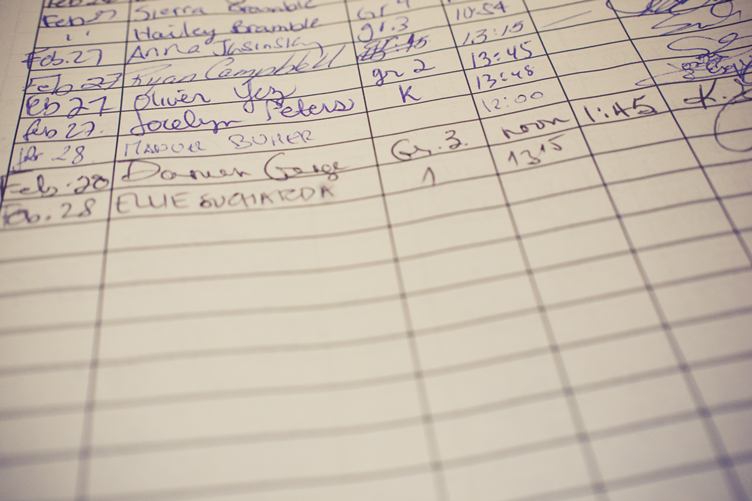 Feb 27 Sierra Bramble gr 4 10:54
" Hailey Bramble gr.3
Feb.27 Anna 13:15
Feb 27 Ryan Campbell 13:45
Feb 27 Oliver gr 2 13:48
Feb 27. Jocelyn Peters K
28 12:00
Feb. 28 Gr. 3. noon 1:45 K.
Feb. 28 ELLIE SUCHARDA 1 13 15